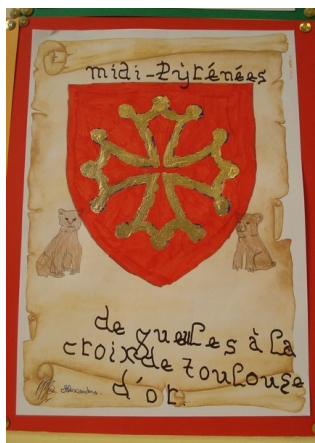 midi-Pyrénées
de gueules à la
croix de Toulouse
d'or.
Alexandra